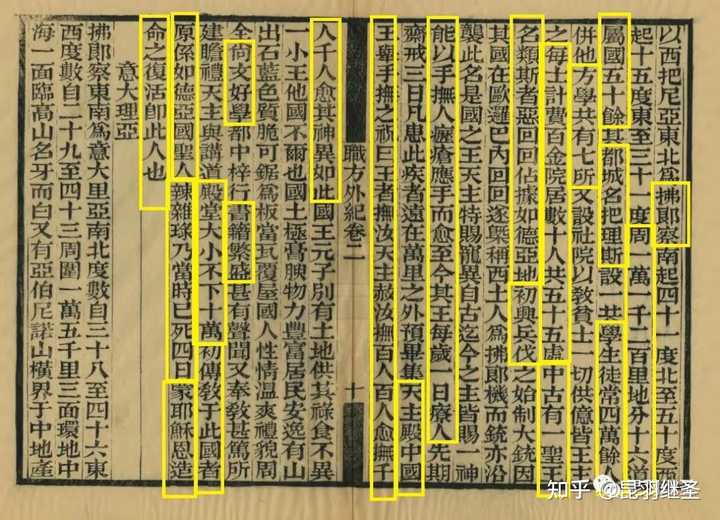 以西把尼亞東北爲拂郞察南起四十一度北至五十度西
起十五度東至三十一度周一萬一千二百里地分十六道
屬國五十餘其都城名把理斯設一共學生徒常四萬餘人
併他方學共有七所又設社院以敎貧士一切供億皆王主
之每士計費百金院居數十人共五十五處中古有一聖王
名類斯者惡回回佔據如德亞地初興兵伐之始制大銃因
其國在歐邏巴內回回遂槩稱西土人爲拂郞機而銃亦沿
襲此名是國之王天主特賜龍異自古迄今之主皆賜一神
能以手撫人癧瘡應手而愈至今其王每歲一日療人先期
齋戒三日凡患此疾者遠在萬里之外預畢集天主殿中國
王舉手撫之祝曰王者撫汝天主赦汝撫百人百人愈撫千
職方外紀卷二
十
人千人愈其神異如此國王元子別有土地供其祿食不異
一小王他國不爾也國土極膏腴物力豐富居民安逸有山
出石藍色質脆可鋸爲板當瓦覆屋國人性情溫爽禮貌周
全尙文好學都中梓行書籍繁盛甚有聲聞又奉敎甚篤所
建瞻禮天主與講道殿堂大小不下十萬初傳敎于此國者
原係如德亞國聖人辣雜琭乃當時已死四日蒙耶穌恩造
命之復活卽此人也
意大理亞
拂郞察東南爲意大里亞南北度數自三十八至四十六東
西度數自二十九至四十三周圍一萬五千里三面環地中
海一面臨高山名牙而白又有亞伯尼諾山橫界于中地產
知乎 @昆羽继圣